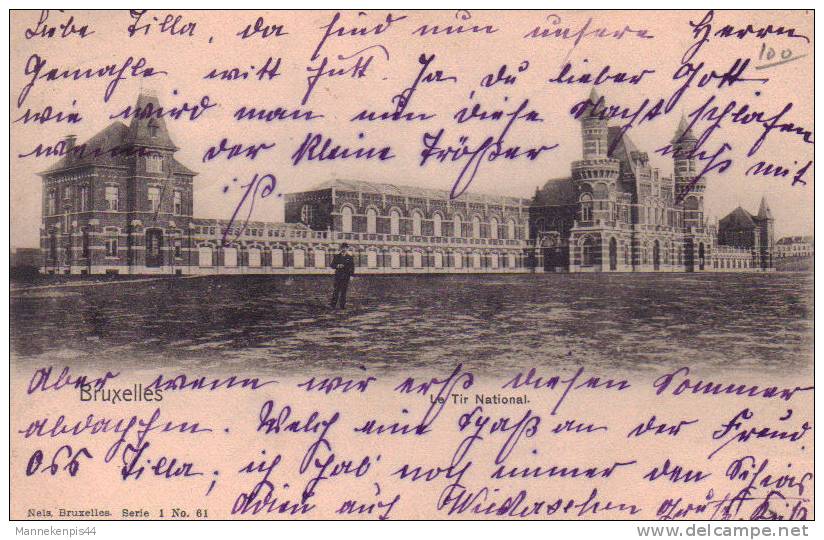 Liebe Tilla, da sind nun unsere Herrn
100
Gemahle mitt futt. Ja du lieber Gott
wie wird man nun diese Nacht schlafen
wenn der kleine Tröster nicht mit
ist.
Aber wenn wir erst diesen Sommer
Bruxelles
Le Tir National.
abdapfen. Welch eine Spaß an der Freud.
Oss Tilla; ich hab noch immer den
Adieu auf Wiedersehen
Nels, Bruxelles. Serie 1 No. 61
Mannekenpis44
http://www.delcampe.net